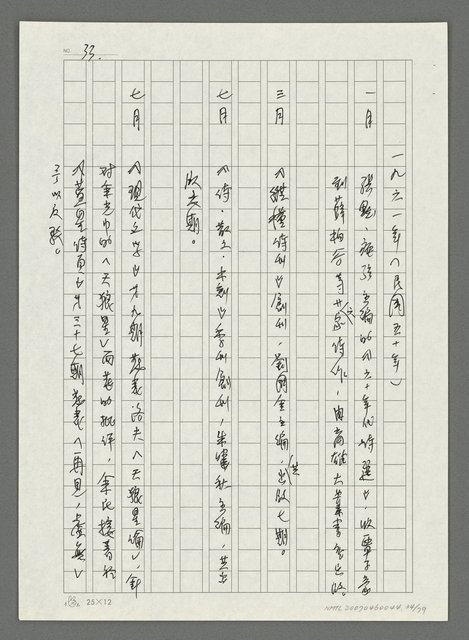 NO. 33.
一九六一年（民國五十年）
一月 張默、瘂弦主編的《六十年代詩選》，收覃子豪
到薛柏谷等廿六家詩作，由高雄大業書店出版。
三月 《縱橫詩刊》創刊，劉國全主編，共出版七期。
七月 《詩・散文・木刻》季刊創刊，朱嘯秋主編，共
出版七期。
七月 《現代文學》廿九期發表洛夫〈天狼星論〉，針
對余光中的〈天狼星〉而發的批評，余氏接著於
《藍星詩頁》第三十七期發表〈再見，虛無〉
予以反駁。
25×12
NMTL 20070460044, 34/79